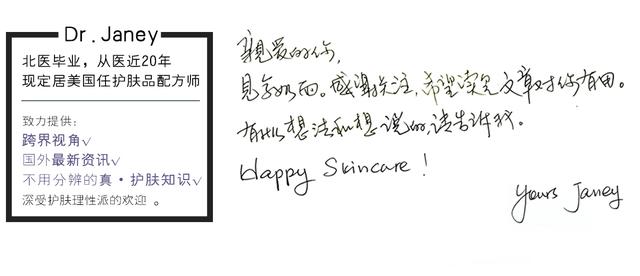 Dr. Janey
北医毕业，从医近20年
现定居美国任护肤品配方师
致力提供：
跨界视角✓
国外最新资讯✓
不用分辨的真·护肤知识✓
深受护肤理性派的欢迎 。
親爱的你,
见字如面。感谢关注,希望读完文章对你有用。
有什么想法和想说的,请告诉我。
Happy Skincare !
Yours Janey